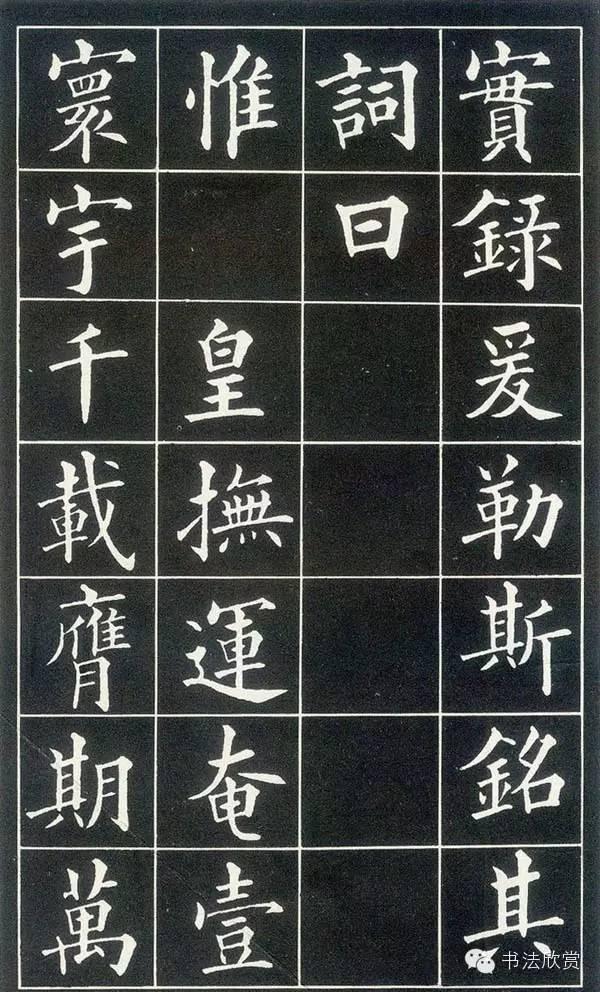 實錄爰勒斯銘其
詞曰
惟皇撫運奄壹
寰宇千載膺期萬
书法欣赏